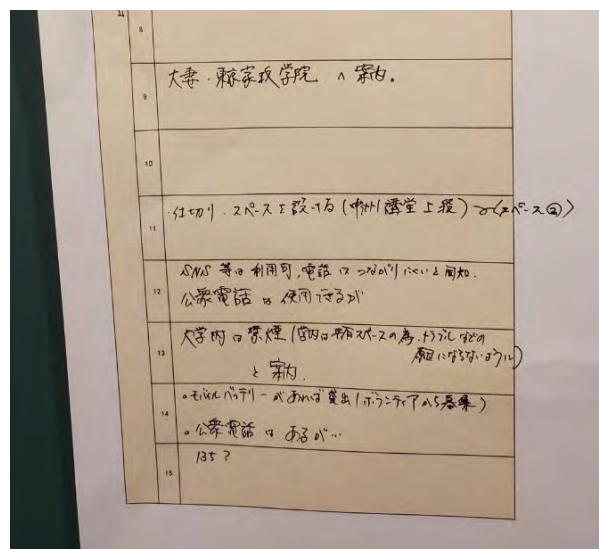 8
9
大妻・東京家政学院 へ 案内。
10
11
・仕切り・スペースを設ける(中州講堂上段) (スペース②)
12
SNS 等は利用可、電話はつながりにくいと周知.
公衆電話は使用できるが
13
大学内は禁煙(室内は共有スペースの為、トラブルなどの
原因にならないように)
と案内.
14
。モバイルバッテリーがあれば貸出(ボランティアから募集)
。公衆電話はあるが…
15
135?